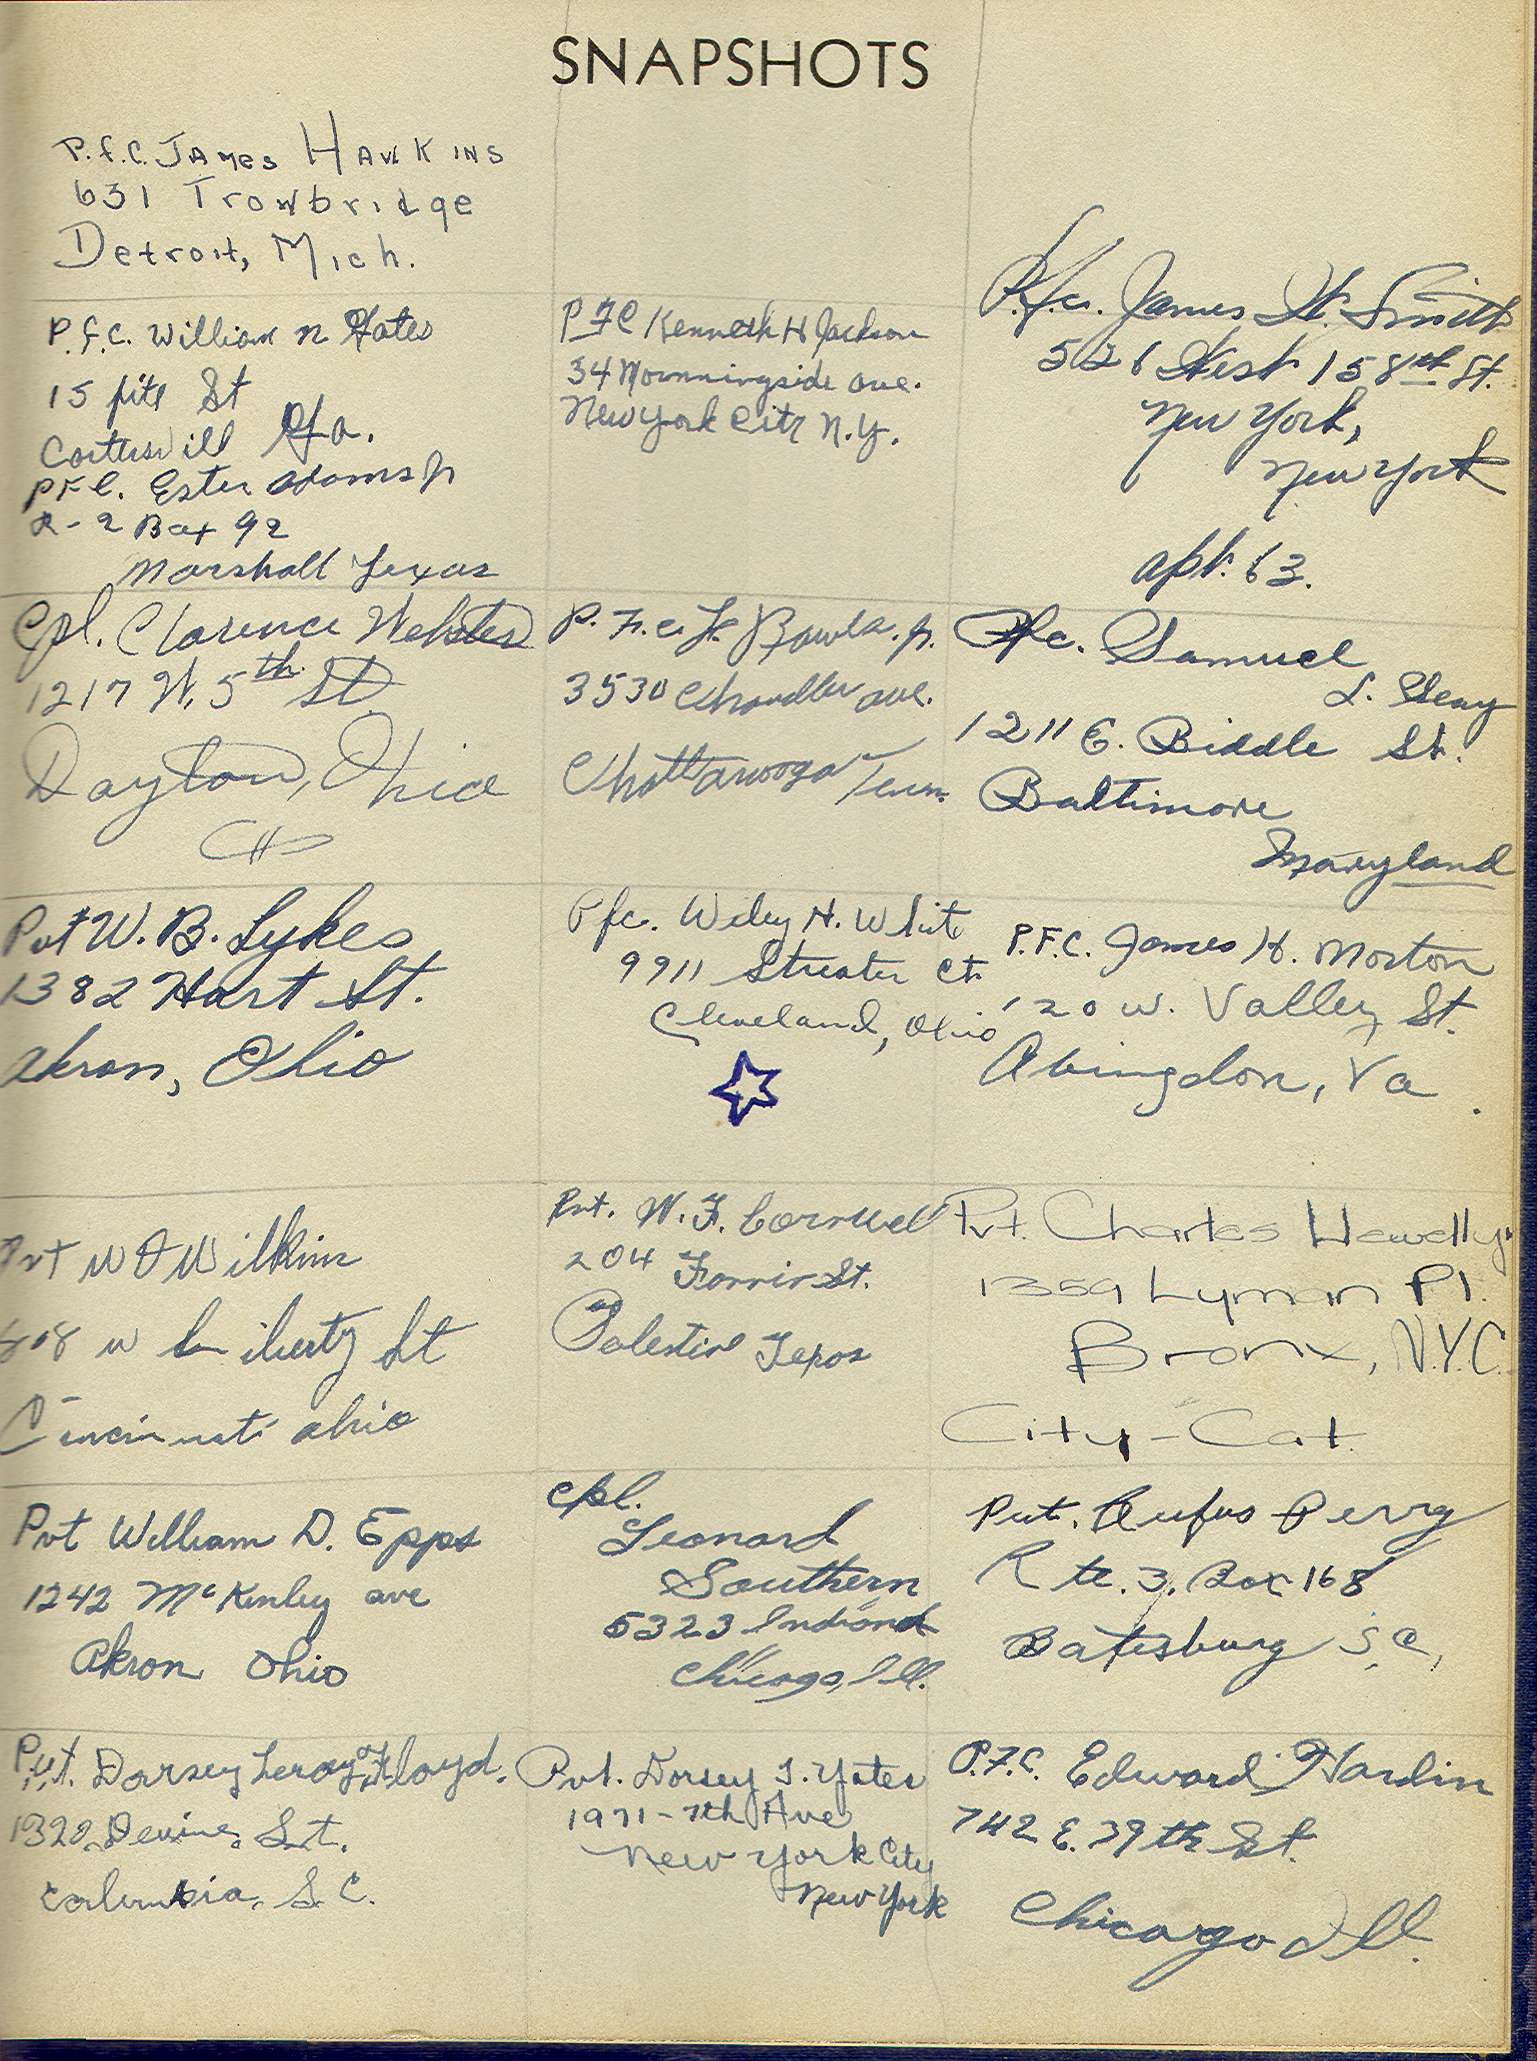 SNAPSHOTS
P.f.C. James Hawkins
631 Trowbridge
Detroit, Mich.
P.f.C. William N
15 St
Ga.
PFC. Ester Adams Jr
R-2 Box 92
Marshall Texas
PFC Kenneth H Jackson
34 Mornningside Ave.
New York City N.Y.
P.f.c. James W. Smith
526 West 158th St.
New York,
New York
apt. 63.
Cpl. Clarence Webster
1217 W. 5th St
Dayton, Ohio
P.F.C. Jr.
3530 Chandler ave.
Chattanooga Tenn.
Pfc. Samuel
L. Seay
1211 E. Biddle St.
Baltimore
Maryland
Pvt W. B. Sykes
1382 Hart St.
Akron, Ohio
Pfc. Wiley H. White
9911 Streater Ct.
Cleveland, Ohio
P.F.C. James H. Morton
120 W. Valley St.
Abingdon, Va.
Pvt W O Wilkins
W Liberty St
Cincinnati Ohio
Pvt. W. F. Cornwel
204 St.
Palestine Texas
Pvt. Charles Llewellyn
1359 Lyman Pl.
Bronx, N.Y.C.
City-Cat
Pvt William D. Epps
1242 McKinley ave
Akron Ohio
Cpl.
Leonard
Southern
5323 Indiana
Chicago, Ill.
Pvt. Rufus Perry
Rte. 3, Box 168
Batesburg S.C.
Pvt. Dorsey Leroy Floyd.
1320 Devine St.
Columbia, S.C.
Pvt. Dorsey J. Yates
1971-7th Ave
New York City
New York
P.F.C. Edward Hardin
742 E. 39th St.
Chicago Ill.